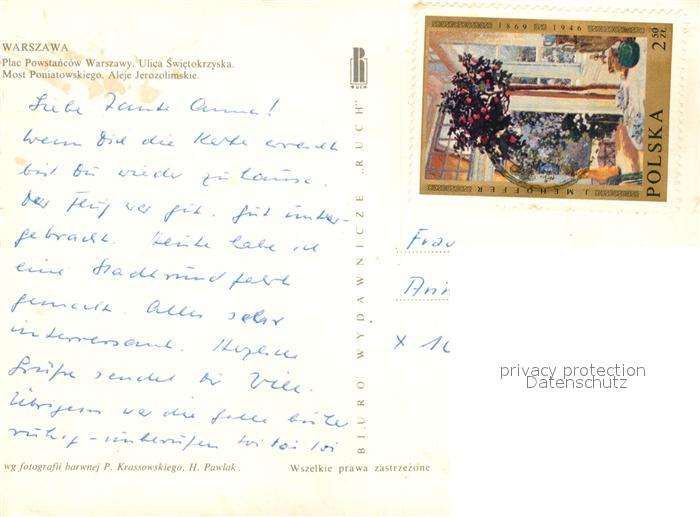 WARSZAWA
Plac Powstańców Warszawy. Ulica Świętokrzyska.
Most Poniatowskiego. Aleje Jerozolimskie.
RUCH
Liebe Tante Anna!
wenn Dich die Karte erreicht
bist Du wieder zu Hause.
Der Flug war gut. Gut unter-
gebracht. Heute habe ich
eine Stadtrundfahrt
gemacht. Alles sehr
interessant. Herzliche
Grüße sendet Dir
Übrigens war die Galle bisher
ruhig - unberufen toi toi toi
wg fotografii barwnej P. Krassowskiego, H. Pawlak.
Wszelkie prawa zastrzeżone
BIURO WYDAWNICZE „RUCH"
1869 1946
2,50 ZŁ
POLSKA
J. MEHOFFER
Frau
X
privacy protection
Datenschutz